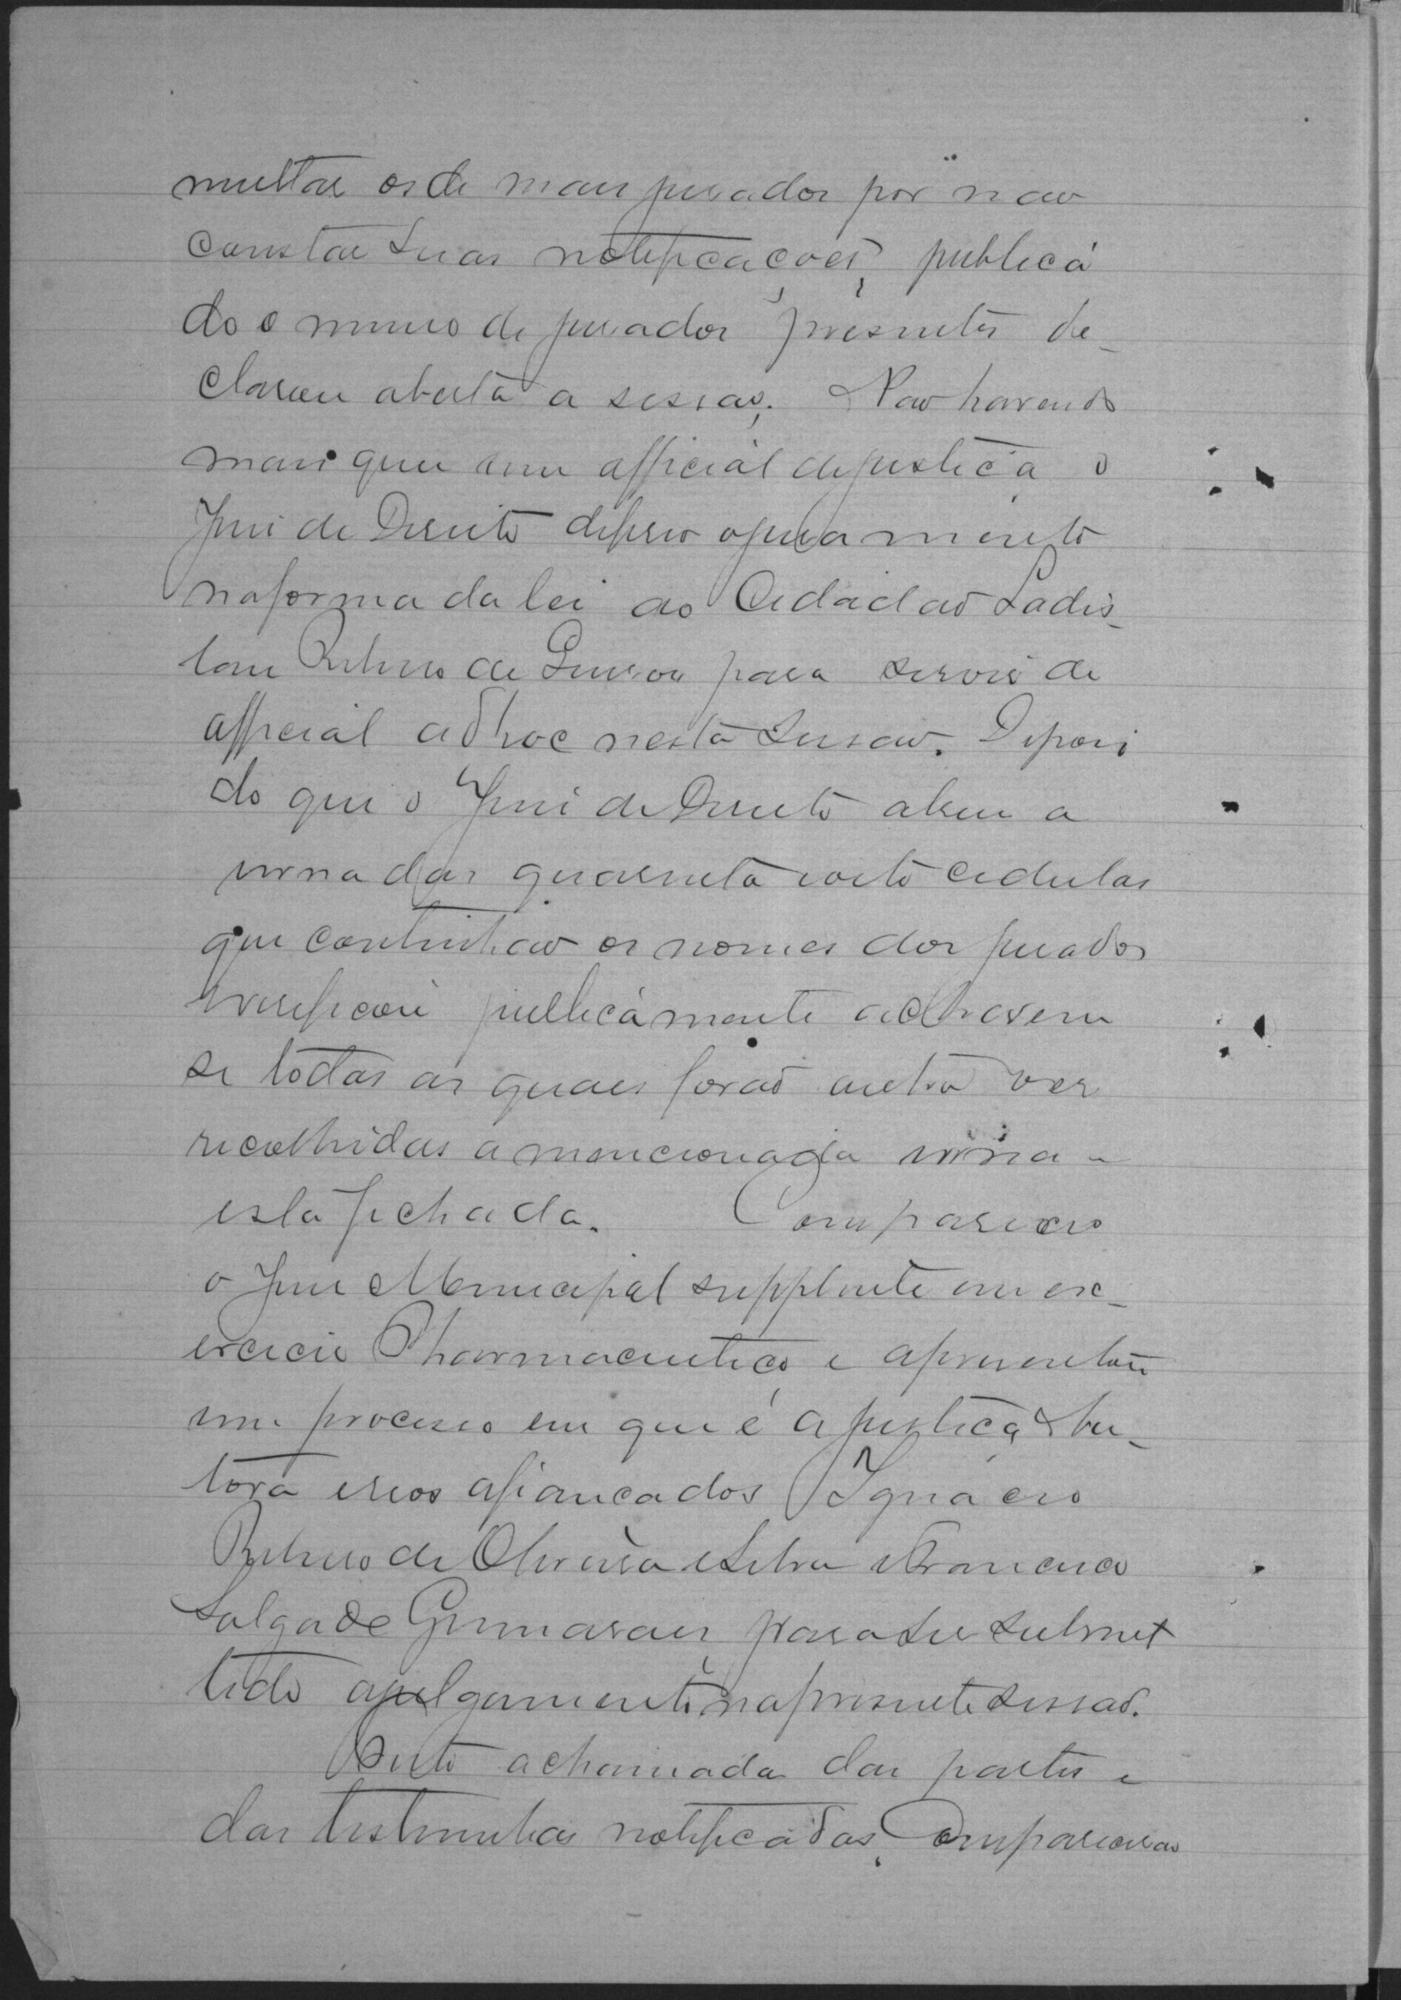 multar os de mais jurados por nao
constar suas notificações, publica
do o numero de jurados presentes de_
clarou aberta a sessao. Nao havendo
mais que um official de justiça o
Juiz de Direito deferio o juramento
na forma da lei ao Cidadao Ladis_
lau Ribeiro de para servir de
official ad hoc nesta sessao. Depois
do que o Juiz de Direito abriu a
urna das quarenta e oito cedulas
que continhao os nomes dos jurados
e verificou publicamente acharem
se todas as quaes forao outra vez
recolhidas a mencionada urna e
esta fechada. Compareceo
o Juiz Municipal supplente em ex_
ercicio Pharmaceutico e apresentou
um processo em que é a justiça Au_
tora e reos afiançados Ignacio
Ribeiro de Oliveira e Silva e Francisco
Salgado Guimaraes para ser submet
tido a julgamento na presente sessao.
Feito a chamada das partes e
das testemunhas notificadas, Comparecerao